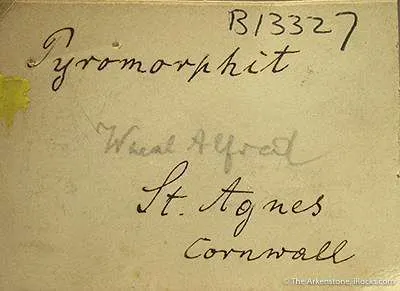 B13327
Pyromorphit
Wheal Alfred
St. Agnes
Cornwall
© The Arkenstone, iRocks.com